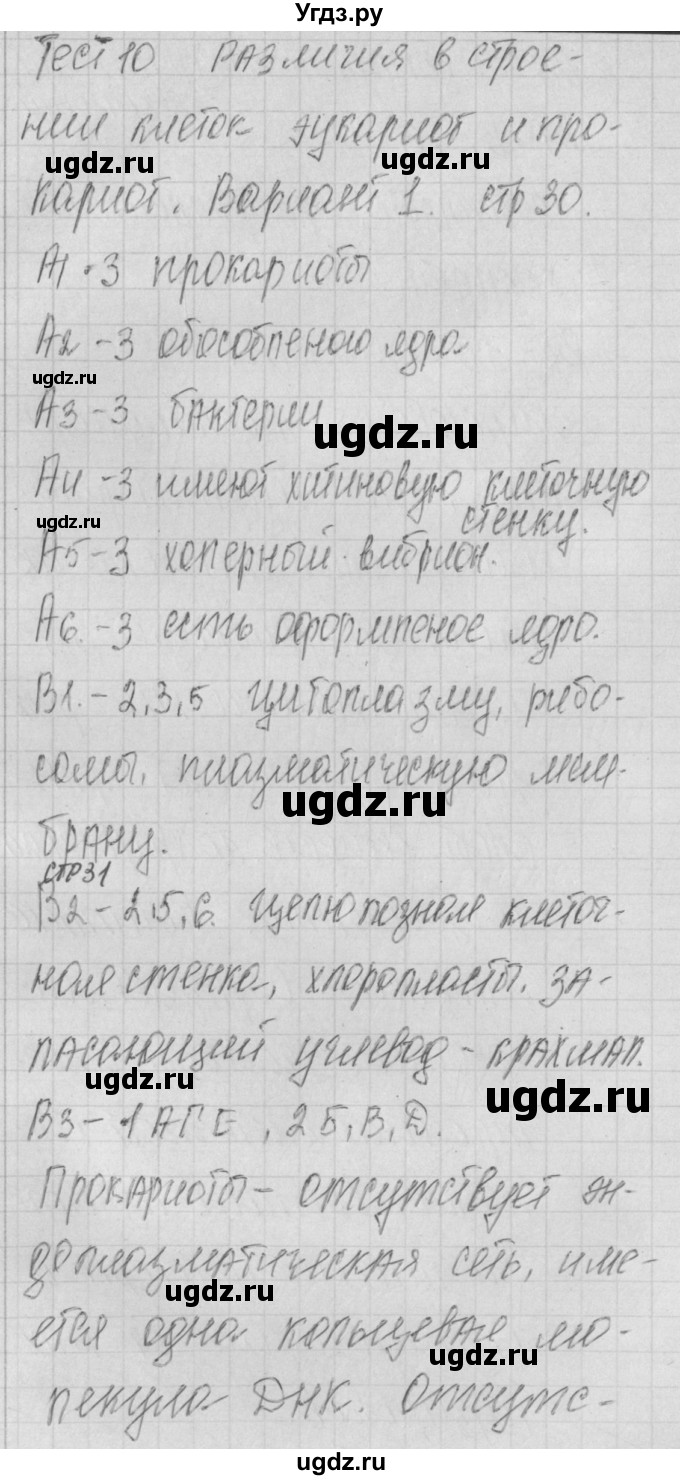 Угдз.ру
Тест 10 Различия в строе-
нии клеток эукариот и про-
ugdz.ru ugdz.ru
кариот. Вариант 1. стр 30.
А1 - 3 прокариоты
А2 - 3 обособленого ядра
ugdz.ru
А3 - 3 бактерии
ugdz.ru
А4 - 3 имеют хитиновую клеточную
стенку.
ugdz.ru
А5 - 3 холерный вибрион.
А6. - 3 есть оформленое ядро.
В1. - 2,3,5 цитоплазму, рибо-
сомы, плазматическую мем-
ugdz.ru
брану.
стр 31
В2 - 2,5,6. Целюлозная клеточ-
ная стенка, хлоропласты, за-
пасающий углевод - крахмал.
ugdz.ru ugdz.ru
В3 - 1 А Г Е , 2 Б, В, Д.
Прокариоты - отсутствует эн-
доплазматическая сеть, име-
ugdz.ru
ется одна кольцевая мо-
ugdz.ru
лекула ДНК. Отсутс-
ugdz.ru